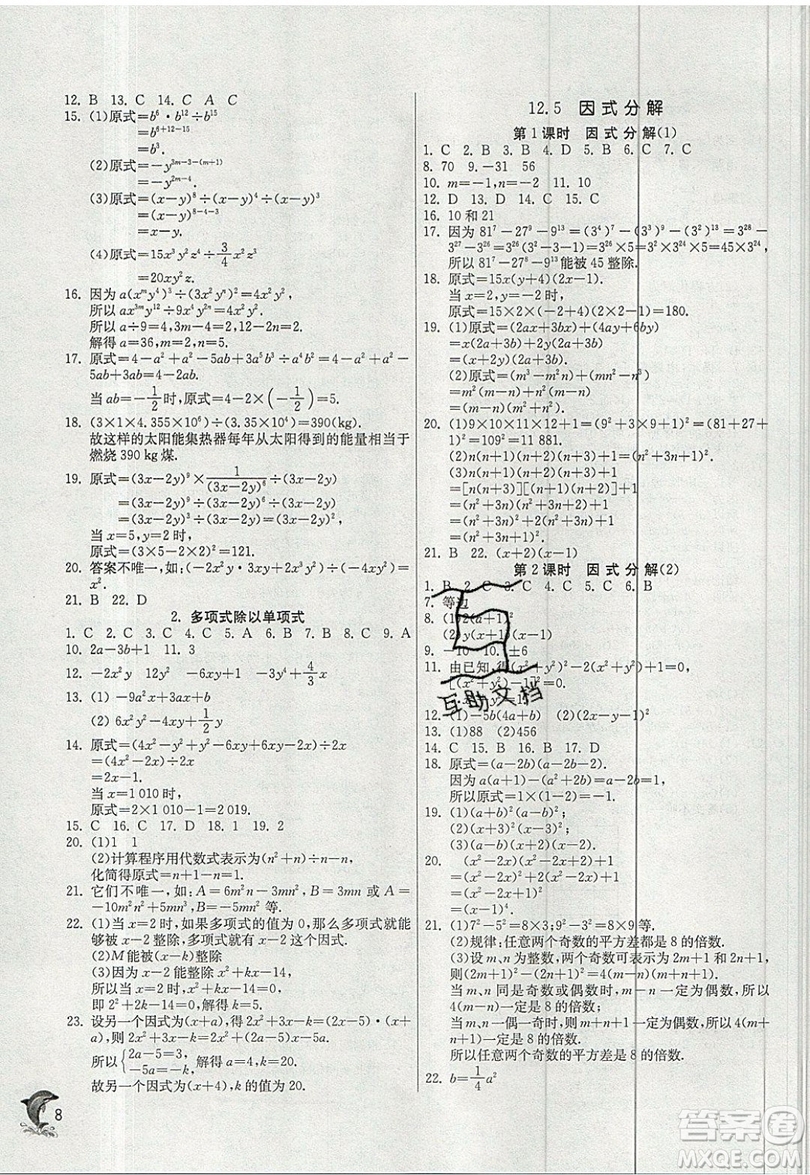 12. B　13. C　14. C　A　C
15. (1)原式=b⁶·b¹²÷b¹⁵
=b⁶⁺¹²⁻¹⁵
=b³.
(2)原式=-y³ᵐ⁻³⁻⁽ᵐ⁺¹⁾
=-y²ᵐ⁻⁴.
(3)原式=(x-y)⁸÷(x-y)⁴÷(x-y)³
=(x-y)⁸⁻⁴⁻³
=x-y.
(4)原式=15x³y³z⁴÷3/4x²z³
=20xy³z.
16. 因为a(xᵐy⁴)³÷(3x²yⁿ)²=4x²y²,
所以ax³ᵐy¹²÷9x⁴y²ⁿ=4x²y²,
所以a÷9=4,3m-4=2,12-2n=2.
解得a=36,m=2,n=5.
17. 原式=4-a²+a²-5ab+3a⁵b³÷a⁴b²
=4-5ab+3ab=4-2ab.
当ab=-1/2时,原式=4-2×(-1/2)=5.
18. (3×1×4.355×10⁶)÷(3.35×10⁴)=390(kg).
故这样的太阳能集热器每年从太阳得到的能量相当于
燃烧390 kg煤.
19. 原式=(3x-2y)⁹×1/(3x-2y)⁶÷(3x-2y)
=(3x-2y)⁹÷(3x-2y)⁶÷(3x-2y)
=(3x-2y)³÷(3x-2y)=(3x-2y)²,
当x=5,y=2时,
原式=(3×5-2×2)²=121.
20. 答案不唯一,如(-2x²y)·(3xy²)÷(-6x²y³)
=x.
21. B　22. D
2. 多项式除以单项式
1. C　2. C　3. A　4. D　5. D　6. B　7. A　8. C　9. A
10. 2a-3b+1　11. 3
12. -2x²y　6x³y-x²y²　-3y⁴+4/3x
13. (1)-9a²x²+3ax³
(2) 6x²y²-4xy+1/2y
14. 原式=(4x²-y²+y²-6xy+6xy-2x)÷2x
=(4x²-2x)÷2x
=2x-1.
当x=1 010时,
原式=2×1 010-1=2 019.
15. C　16. C　17. C　18. 1　19. 2
20. (1)1　1
(2)计算程序用代数式表示为(n²+n)÷n-n,
化简得原式=n+1-n=1.
21. 它们不唯一,如:A=6m²n-3mn²,B=6m²n²,C=
-10m²n²+5mn³等.
22. (1)当x=2时,如果多项式的值为0,那么多项式就能
够被x-2整除,多项式就有x-2这个因式.
(2)M能被(x-k)整除
(3)因为x-2能整除x²+kx-14,
所以当x-2=0时,x²+kx-14=0,
即2²+2k-14=0,解得k=5.
23. 设另一个因式为(x+a),得2x²+3x-k=(2x-5)·(x+
a),则2x²+3x-k=2x²+(2a-5)x-5a.
所以{2a-5=3,
-5a=-k.
解得a=4,k=20.
故另一个因式为(x+4),k的值为20.
8
12.5　因式分解
第1课时　因式分解(1)
1. C　2. B　3. A　4. C　5. C　6. D　7. C
8. 70　9. -31　56
10. m=-1,n=-2　11. 10
12. D　13. D　14. C　15. A
16. 10和21
17. 因为81⁷-27⁹-9¹³=(3⁴)⁷-(3³)⁹-(3²)¹³=3²⁸-
3²⁷-3²⁶=3²⁶(3²-3-1)=3²⁶×5=3²⁴×45,
所以81⁷-27⁹-9¹³能被45整除.
18. 原式=15x(y+4)(2x-1).
当x=2,y=-2时,
原式=15×2×(-2+4)(2×2-1)=180.
19. (1)原式=(2ax+3bx)+(4ay+6by)
=x(2a+3b)+2y(2a+3b)
=(x+2y)(2a+3b)
(2)原式=(m³-m²n)-(mn²-n³)
=m²(m-n)-n²(m-n)
=(m-n)(m²-n²).
20. (1)9×10×11×12+1=(9²+3×9+1)²=(81+27+
1)²=109²=11 881.
(2)n(n+1)(n+2)(n+3)+1=(n²+3n+1)².
(3)n(n+1)(n+2)(n+3)+1
=[n(n+3)][(n+1)(n+2)]+1
=(n²+3n)(n²+3n+2)+1
=(n²+3n)²+2(n²+3n)+1
=(n²+3n+1)².
21. B　22. (x+2)(x-1)
第2课时　因式分解(2)
1. B　2. C　3. C　4. C　5. C　6. B
7. 等边
8. (1)2(a+1)²
(2)y(x+1)(x-1)
9. -10　10. ±6
11. 由已知,得(x²+y²)²-2(x²+y²)+1=0,
[(x²+y²)-1]²=0,
12. (1)-5b(4a+b)　(2)(2x-1)²
13. (1)88　(2)456
14. C　15. B　16. B　17. D
18. 原式=(a-2b)(a-2b+1).
因为a(a+1)-(a²+2b)=a-2b=1,
所以原式=1×(1+1)=2.
19. (1)(a+b)²(a-b)²;
(2)(x-2)²(x-3)²;
(3)(a-b)(x+2)(x-2).
20. (x²-2x)(x²-2x+2)+1
=(x²-2x)²+2(x²-2x)+1
=(x²-2x+1)²
=(x-1)⁴.
21. (1)7²-5²=8×3;9²-3²=8×9等.
(2)规律:任意两个奇数的平方差都是8的倍数.
(3)设m、n为整数,两个奇数可表示为2m+1和2n+1,
则(2m+1)²-(2n+1)²=4(m-n)(m+n+1).
当m、n同是奇数或偶数时,m-n一定为偶数,所以
4(m-n)一定是8的倍数;
当m、n一偶一奇时,则m+n+1一定为偶数,所以4(m
+n+1)一定是8的倍数.
所以任意两个奇数的平方差是8的倍数.
22. b=1/4a²
互助文档
答案圈
MXQE.COM